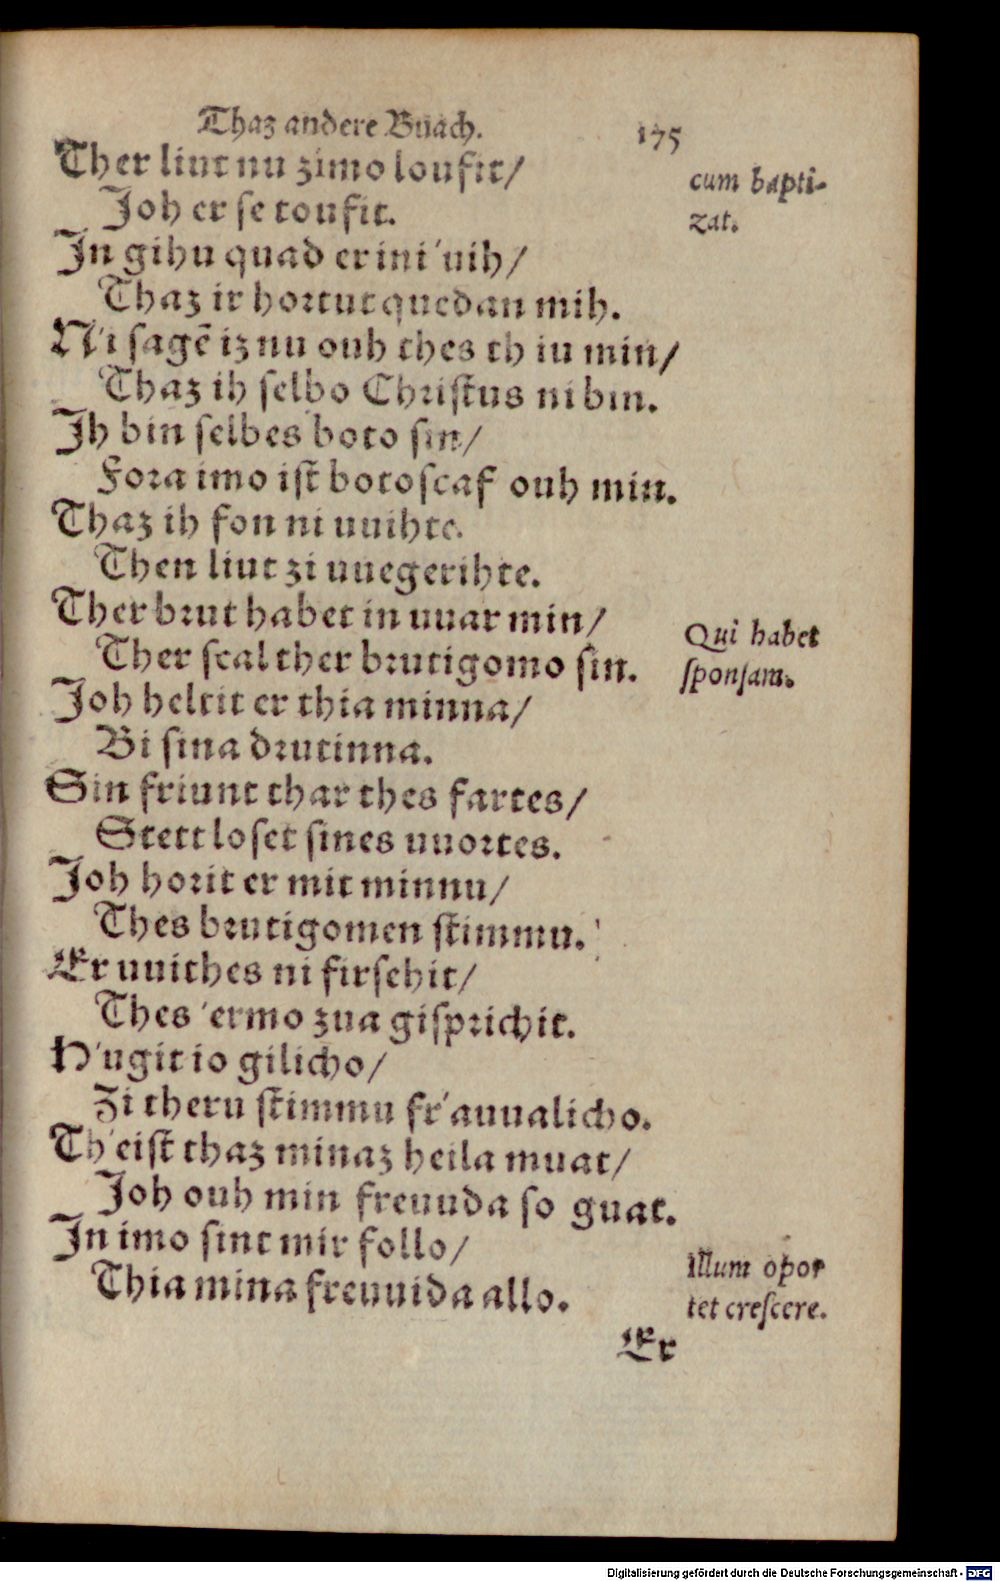 Thaz andere Buach. 175
Ther liut nu zimo loufit/
Joh er se toufit.
cum bapti-
zat.
In gihu quad er ini 'uih/
Thaz ir hortut quedan mih.
N'i sagē iz nu ouh thes th iu min/
Thaz ih selbo Christus ni bin.
Ih bin selbes boto sin/
Fora imo ist botoscaf ouh min.
Thaz ih fon ni uuihte.
Then liut zi uuegerihte.
Ther brut habet in uuar min/
Ther scal ther brutigomo sin.
Qui habet
sponsam.
Joh heltit er thia minna/
Bi sina drutinna.
Sin friunt thar thes fartes/
Stett loset sines uuortes.
Joh horit er mit minnu/
Thes brutigomen stimmu.
Er uuithes ni firsehit/
Thes 'ermo zua gisprichit.
H'ugit io gilicho/
Zi theru stimmu fr'auualicho.
Th'eist thaz minaz heila muat/
Joh ouh min freuuda so guat.
In imo sint mir follo/
Thia mina freuuida allo.
Illum opor
tet crescere.
Er
Digitalisierung gefördert durch die Deutsche Forschungsgemeinschaft - DFG